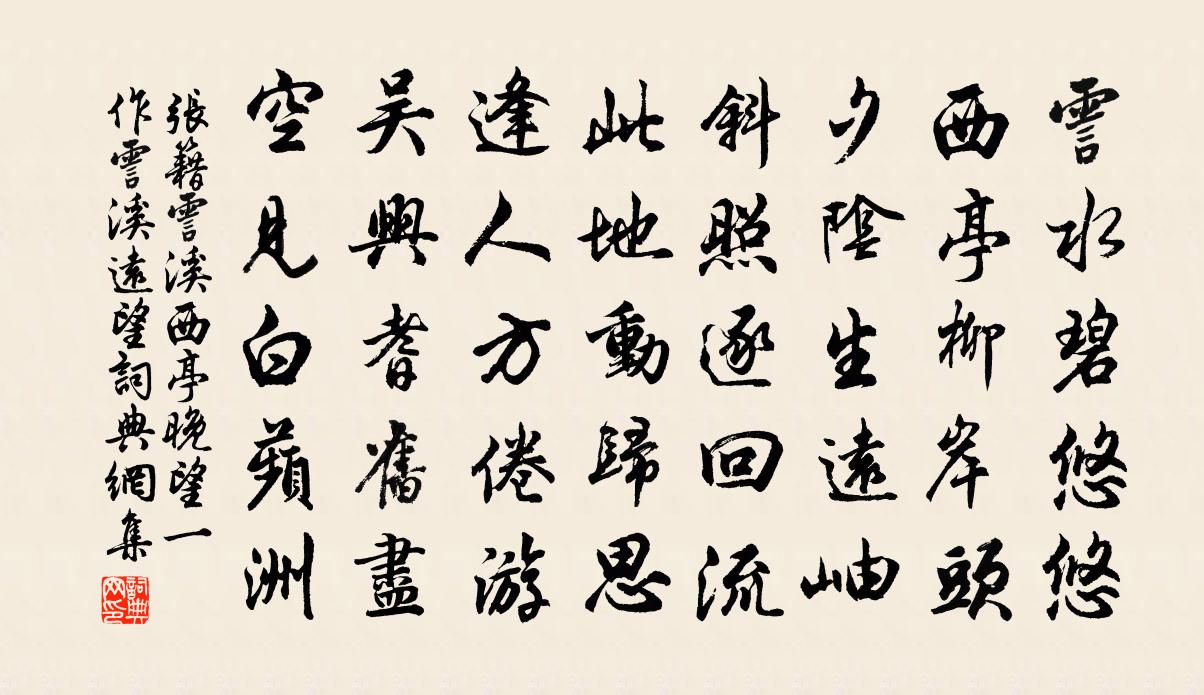 霅水碧悠悠
西亭柳岸頭
夕陰生遠岫
斜照逐回流
此地動歸思
逢人方倦游
吳興耆舊盡
空見白蘋洲
張籍霅溪西亭晚望一
作霅溪遠望詞典網集
詞典
网印